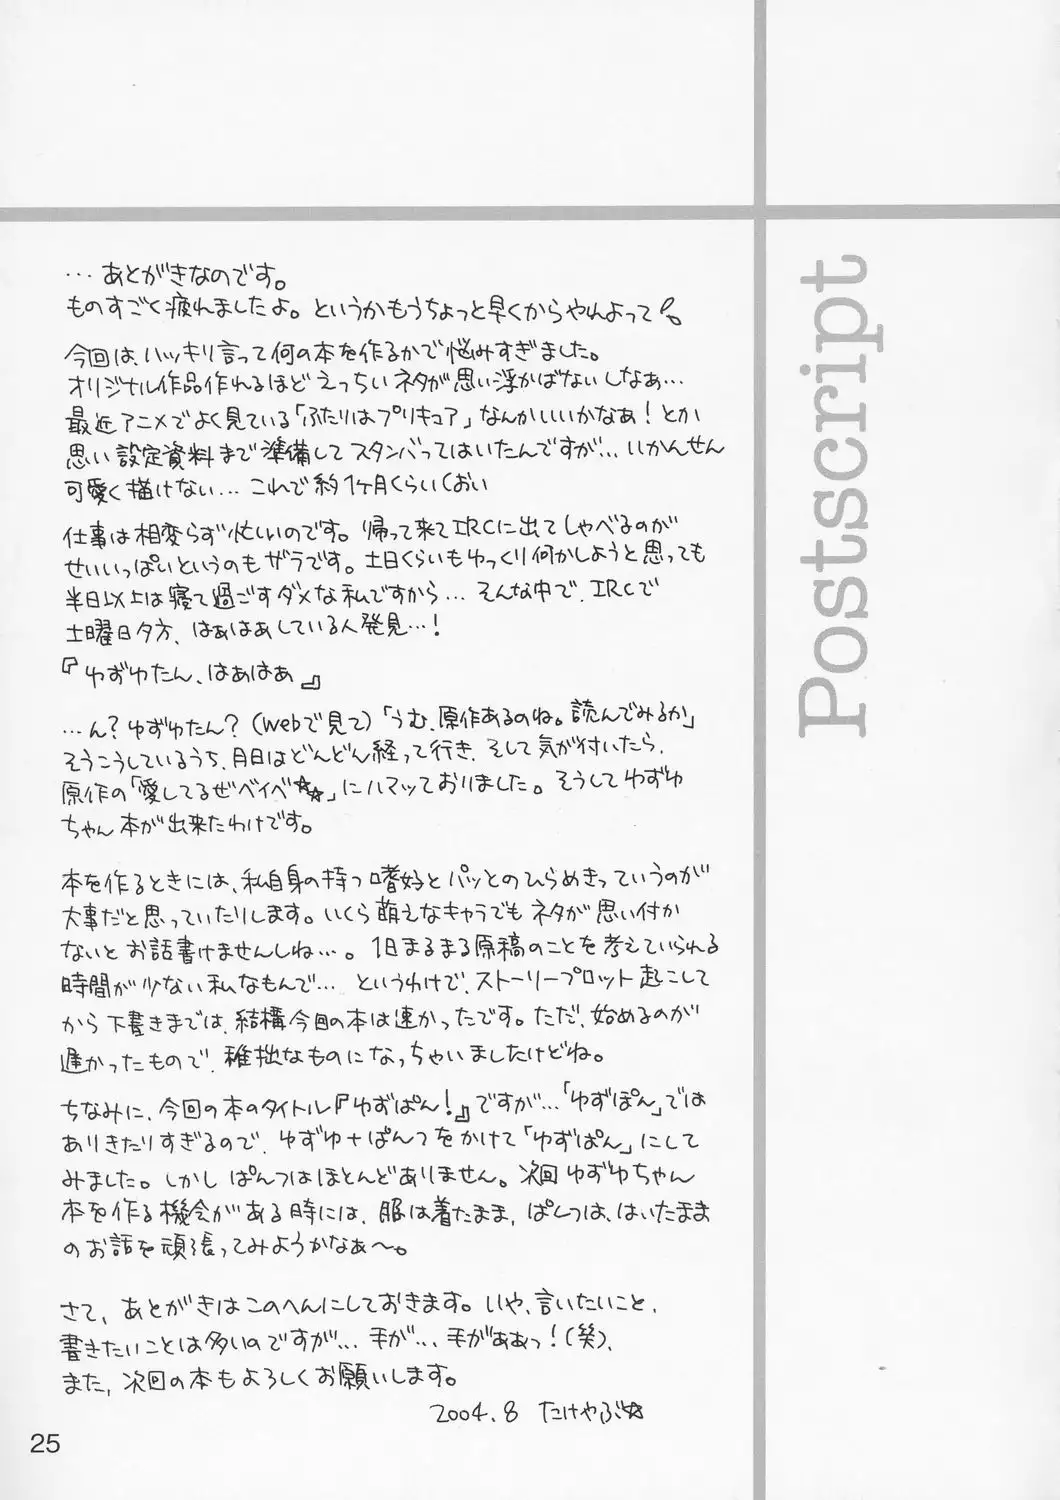 Postscript
…あとがきなのです。
ものすごく疲れましたよ。というかもうちょっと早くからやれよって
今回は、ハッキリ言って何の本を作るかで悩みすぎました。
オリジナル作品作れるほどえっちいネタが思い浮かばないしなぁ…
最近アニメでよく見ている「ふたりはプリキュア」なんかいいかなぁ!とか
思い設定資料まで準備してスタンバってはいたんですが…いかんせん
可愛く描けない…これで約1ヶ月くらい(おい
仕事は相変らず忙しいのです。帰って来てIRCに出てしゃべるのが
せいいっぱいというのもザラです。土日くらいもゆっくり何かしようと思っても
半日以上は寝て過ごすダメな私ですから…そんな中で、IRCで
土曜日夕方、はぁはぁしている人発見…!
『ゆずゆたん、はぁはぁ』
…ん?ゆずゆたん?(webで見て)「うむ、原作あるのね。読んでみるか」
そうこうしているうち、月日はどんどん経って行き、そして気が付いたら、
原作の「愛してるぜベイベ☆☆」にハマッておりました。そうしてゆずゆ
ちゃん本が出来たわけです。
本を作るときには、私自身の持つ嗜好とパッとのひらめきっていうのが
大事だと思っていたりします。いくら萌えなキャラでもネタが思い付か
ないとお話書けませんしね…。1日まるまる原稿のことを考えていられる
時間が少ない私なもんで…というわけで、ストーリープロット起こして
から下書きまでは、結構今回の本は速かったです。ただ、始めるのが
遅かったもので、稚拙なものになっちゃいましたけどね。
ちなみに、今回の本のタイトル『ゆずぱん!』ですが…「ゆずぽん」では
ありきたりすぎるので、ゆずゆ+ぱんつをかけて「ゆずぱん」にして
みました。しかしぱんつはほとんどありません。次回ゆずゆちゃん
本を作る機会がある時には、服は着たまま、ぱんつは、はいたまま
のお話を頑張ってみようかなぁ〜。
さて、あとがきはこのへんにしておきます。いや、言いたいこと、
書きたいことは多いのですが…手が…手がぁぁっ!(笑)、
また、次回の本もよろしくお願いします。
2004.8 たけやぶ☆
25